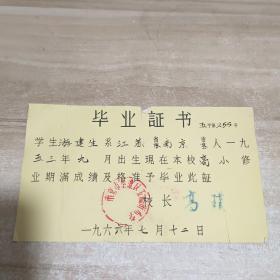 毕业証书
字第255号
学生游建生系江苏省南京市人一九
五三年九月出生現在本校高小修
业期滿成績及格准予毕业此証
校长
一九六六年七月十二日